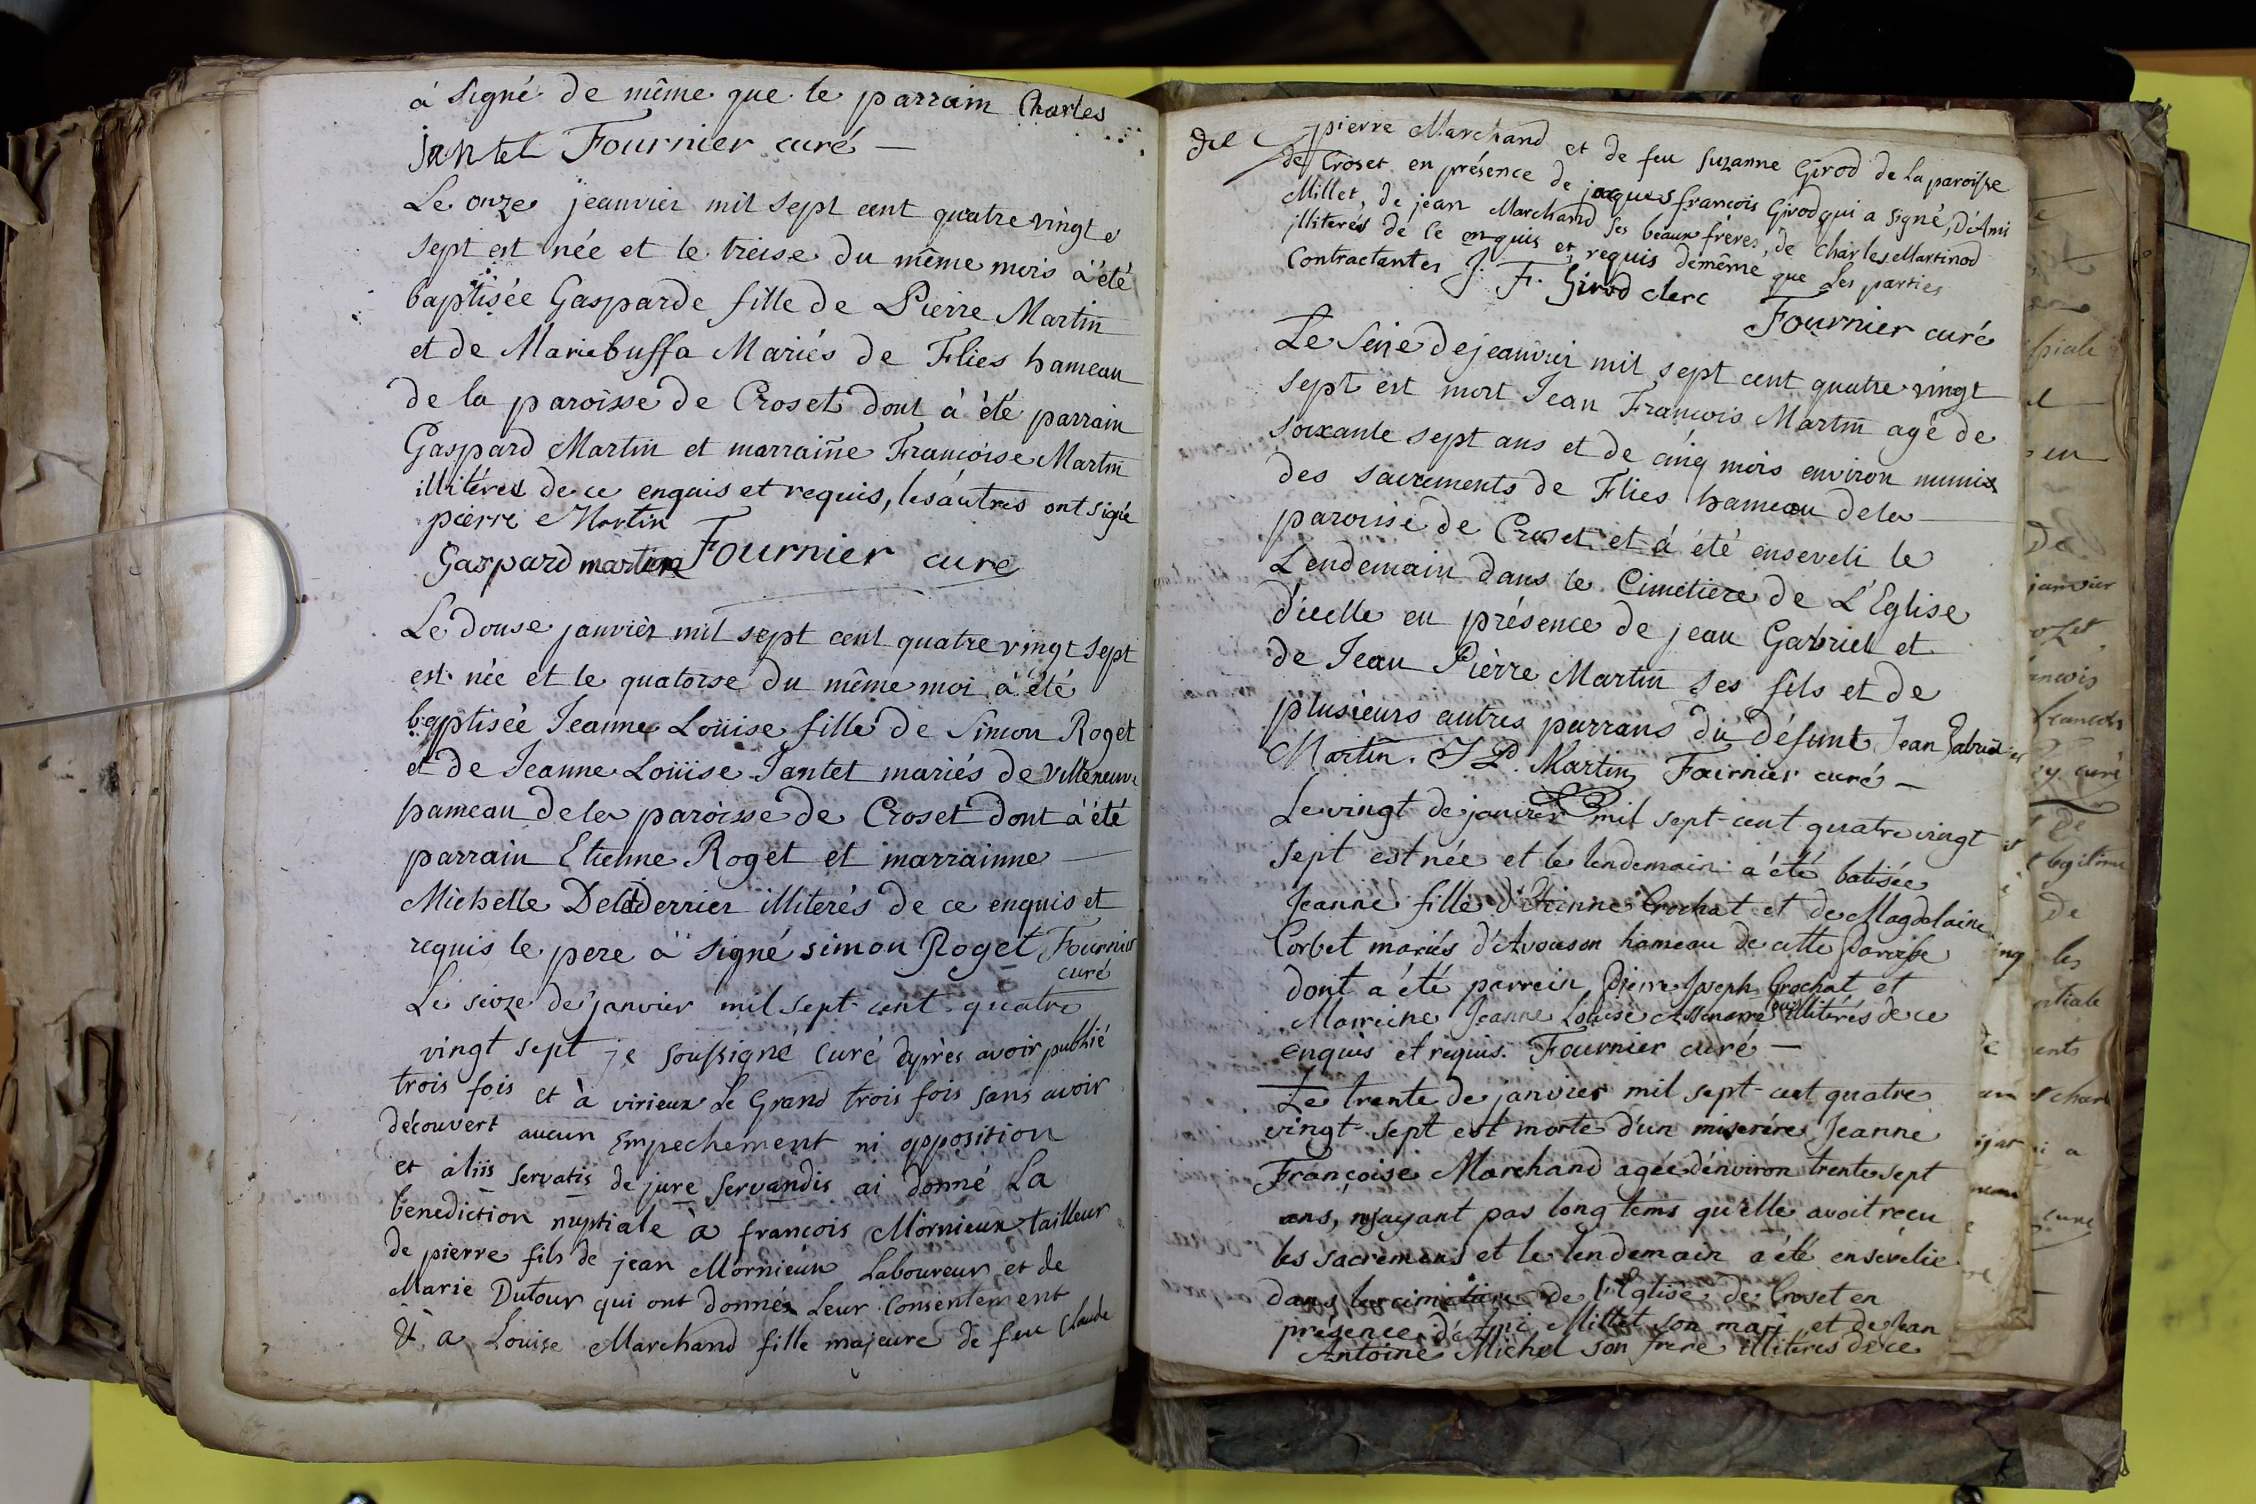 à signé de même que le parrain Charles
jantet Fournier curé —
Le onze jeanvier mil sept cent quatre vingt
sept est née et le treise du même mois à été
baptisée Gasparde fille de Pierre Martin
et de Marie buffa Mariés de Flies hameau
de la paroisse de Croset dont à été parrain
Gaspard Martin et marraine Francoise Martin
illitérés de ce enquis et requis, les autres ont signé
pierre Martin
Gaspard martin Fournier curé
Le douse janvièr mil sept cent quatre vingt sept
est née et le quatorse du même moi à été
baptisée Jeanne Loüise fille de Simon Roget
et de Jeanne Loüise Jantet mariés de Villeneuve
hameau de la paroisse de Croset dont à été
parrain Etienne Roget et marrainne —
Michelle Delederrier illiterés de ce enquis et
requis le pere à signé simon Roget Fournier
curé
Le seize de janvier mil sept cent quatre
vingt sept je soussigné Curé après avoir publié
trois fois et à virieux Le Grand trois fois sans avoir
découvert aucun Empechement ni opposition
et aliis servatis de jure servandis ai donné La
benediction nuptiale à francois Mornieux tailleur
de pierre fils de jean Mornieux Laboureur et de
Marie Dutour qui ont donnés Leur Consentement
& a Louise Marchand fille majeure de feu Claude
pierre Marchand et de feu suzanne Girod de la paroisse
de Croset en présence de jacques francois Girod qui a signé, d'Ami
Millet, de jean Marchand ses beaux frères, de Charles Martinod
illiterés de ce enquis et requis demême que les parties
Contractantes J. F. Girod clerc
Fournier curé
Le seise de jeanvier mil sept cent quatre vingt
sept est mort Jean François Martin agé de
soixante sept ans et de cinq mois environ munis
des sacrements de Flies hameau de la —
paroisse de Croset et à été enseveli le
Lendemain dans le Cimetiere de L'Eglise
d'icelle en présence de jean Gabriel et
de Jean Pièrre Martin ses fils et de
plusieurs autres parrans du défunt Jean Gabriel
Martin. J P. Martin Fournier curé —
Le vingt de janvier mil sept cent quatre vingt
sept est née et le lendemain a été batisée
Jeanne fille d'Etienne Crochat et de Magdelaine
Corbet mariés d'Avouson hameau de cette Paroisse
dont a été parrein Pierre Joseph Crochat et
Marreine Jeanne Louise illitérés de ce
enquis et requis. Fournier curé —
Le trente de janvier mil sept cent quatre
vingt sept est morte d'un miserére Jeanne
Françoise Marchand agée d'environ trente sept
ans, n'ayant pas long tems qu'elle avoit recu
les sacremens et le lendemain a été ensévelie
dans le cimetiere de l'Eglise de Croset en
présence d'Ami Millet son mari et de Jean
Antoine Michel son frère illitérés de ce